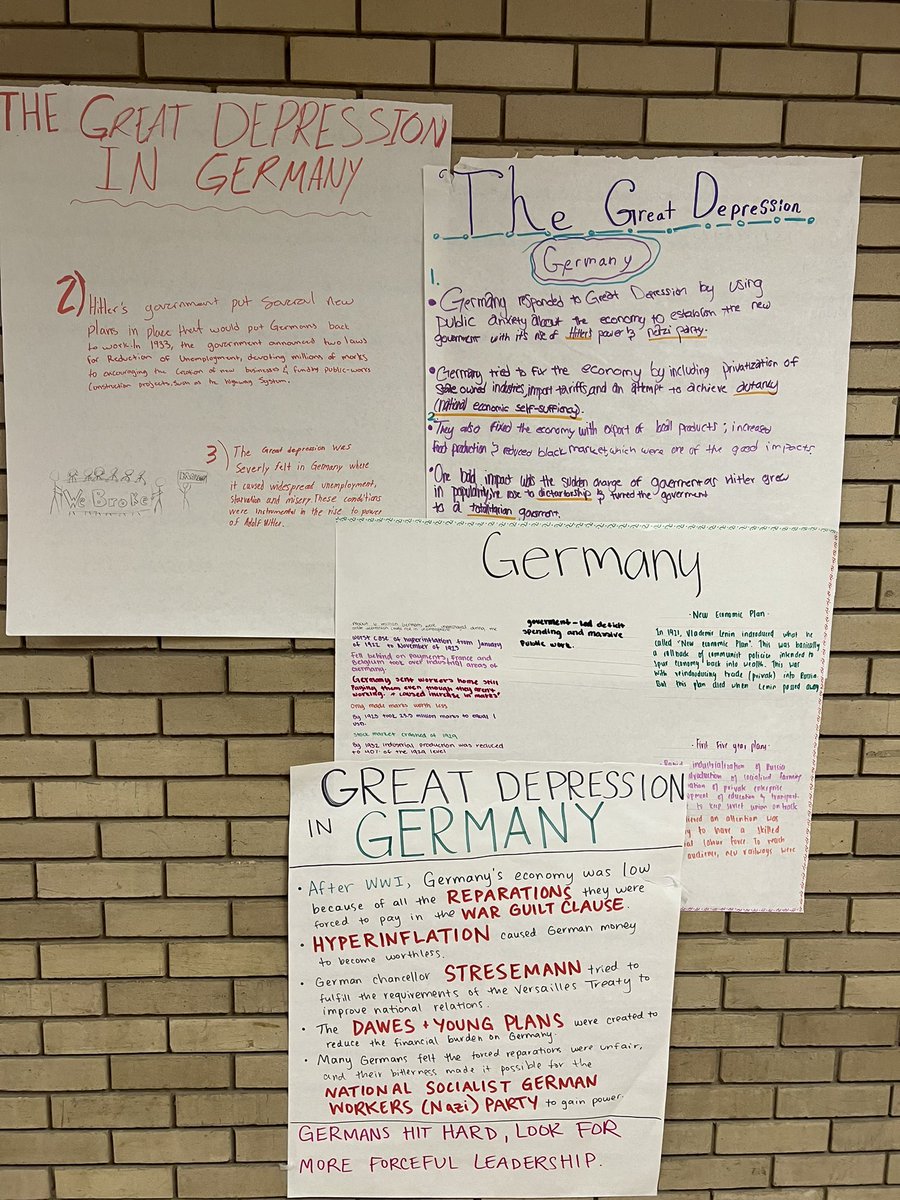 THE GREAT DEPRESSION
IN GERMANY
2) Hitler's government put several new
plans in place that would put Germans back
to work. In 1933, the government announced two laws
for Reduction of Unemployment, devoting millions of marks
to encouraging the creation of new businesses & funding public-works
construction projects, such as the highway system.
3) The Great depression was
Severly felt in Germany where
it caused widespread unemployment,
starvation and misery. These conditions
were instrumental in the rise to power
of Adolf Hitler.
We Broke
The Great Depression
Germany
1.
• Germany responded to Great Depression by using
public anxiety about the economy to establish the new
government with its rise of Hitler's power & nazi party.
• Germany tried to fix the economy by including privatization of
state owned industries, import tariffs, and an attempt to achieve autarky
(national economic self-sufficiency).
2.
• They also fixed the economy with export of local products; increased
food production & reduced black market, which were one of the good impacts
• One bad impact was the sudden change of government as Hitler grew
in popularity, rise to dictatorship & turned the government
to a totalitarian government.
Germany
worst case of hyperinflation from January
of 1922 to November of 1923
Fell behind on payments, France and
Belgium took over industrial areas of
Germany.
Germany sent worker's home still
Paying them even though they aren't
working. + caused increase in marks
Only made marks worth less
By 1923 took million marks to equal 1
USD.
Stock market crashed of 1929
By 1932 industrial production was reduced
to 40% of the 1929 level
government-led deficit
spending and massive
public work.
New Economic Plan
In 1921, Vlademir Lenin indroduced what he
called "New economic Plan". This was basically
a collobade of communist policies intended to
spur economy back into wealth. This was
with reindroducing trade (privat) into Russia
But this plan died when Lenin passed away
First Five year plan
Rapid industrialisation of Russia
troduction of socialised farming
nation of private enterprise
opment of education & transport
t to keep soviet union on track
ered an attention was
y to have a skilled
al labour force. To reach
audience, new railways were
GREAT DEPRESSION
IN GERMANY
• After WWI, Germany's economy was low
because of all the REPARATIONS they were
forced to pay in the WAR GUILT CLAUSE.
• HYPERINFLATION caused German money
to become worthless.
• German chancellor STRESEMANN tried to
fulfill the requirements of the Versailles Treaty to
improve national relations.
• The DAWES + YOUNG PLANS were created to
reduce the financial burden on Germany.
• Many Germans felt the forced reparations were unfair,
and their bitterness made it possible for the
NATIONAL SOCIALIST GERMAN
WORKERS (Nazi) PARTY to gain power.
GERMANS HIT HARD, LOOK FOR
MORE FORCEFUL LEADERSHIP.